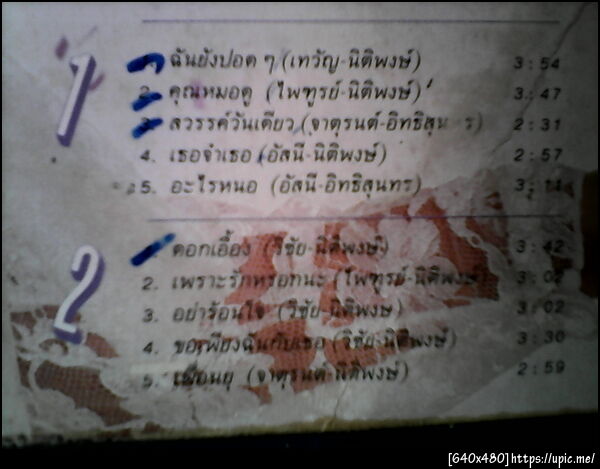 1
1. ฉันยังปอด ๆ (เทวัญ-นิติพงษ์) 3:54
2. คุณหมอดู (ไพฑูรย์-นิติพงษ์) 3:47
3. สวรรค์วันเดียว (จาตุรนต์-อิทธิสุนทร) 2:31
4. เธอจำเธอ (อัสนี-นิติพงษ์) 2:57
5. อะไรหนอ (อัสนี-อิทธิสุนทร)
2
ดอกเอื้อง (วิชัย-นิติพงษ์) 3:42
2. เพราะรักหรอกนะ (ไพฑูรย์-นิติพงษ์)
3. อย่าร้อนใจ (วิชัย-นิติพงษ์) 3:02
4. ขอเพียงฉันกับเธอ (วิชัย-นิติพงษ์) 3:30
5. เพื่อนยุ (จาตุรนต์-นิติพงษ์) 2:59
[640x480]https://upic.me/